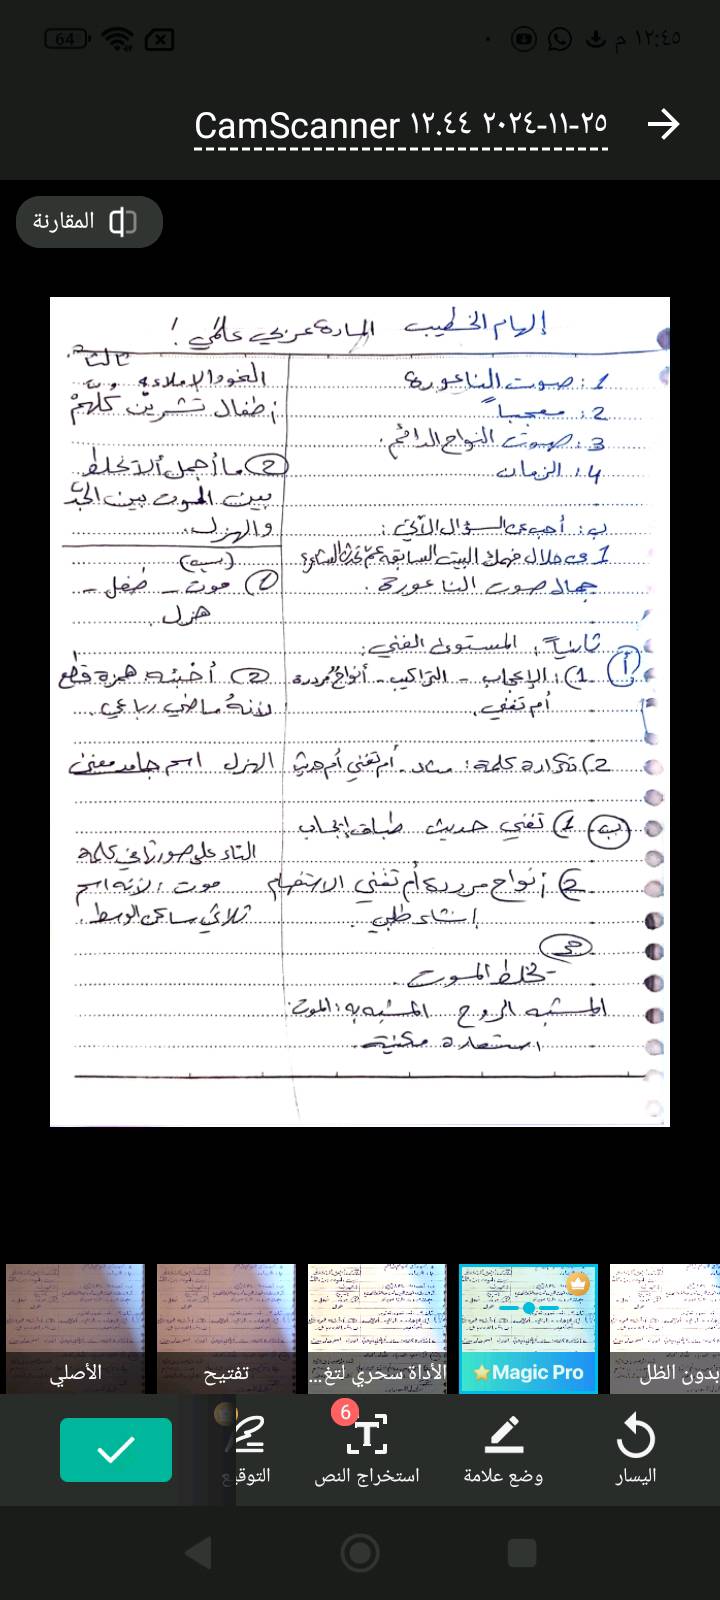 64
١٢:٤٥ م
CamScanner ١٢.٤٤ ٢٠٢٤-١١-٢٥
المقارنة
إلهام الخطيب المادة عربي علمي !
1: صوت الناعورة
2: معجباً
3: صوت النواح الدائم.
4: الزمان
ب: أجب عن السؤال الآتي:
1 من خلال فهمك البيت السابق عمّ تحدث الشاعر؟
جمال صوت الناعورة.
ثانياً: المستوى الفني:
أ
1): الإعجاب - التراكيب - أنواح مرددة
أم تغني.
2) تكراره كلمة: أم تغني أم حديث
ب 1) تغني حديث طباق إيجاب
2) أنواح مرددة أم تغني الاستفهام
إنشاء طلبي.
جـ
تخلط الموت.
المشبه الروح المشبه به: الموت.
استعارة مكنية.
ثالثاً:
النحو والإملاء
أطفال تشرين كلهمْ
2 ما أجمل ألا تخلط
بين الموت بين الجدّ
والهزل.
(ب)
1) موت - طفل -
هزل.
2) أخبئه همزة قطع
لأنهُ ماضي رباعي.
الهزل اسم جامد معنى
التاء على صورتها في كلمة
موت: لأنه اسم
ثلاثي ساكن الوسط.
الأصلي
تفتيح
الأداة سحري لتغ...
Magic Pro
بدون الظل
التوقيع
6
استخراج النص
وضع علامة
اليسار